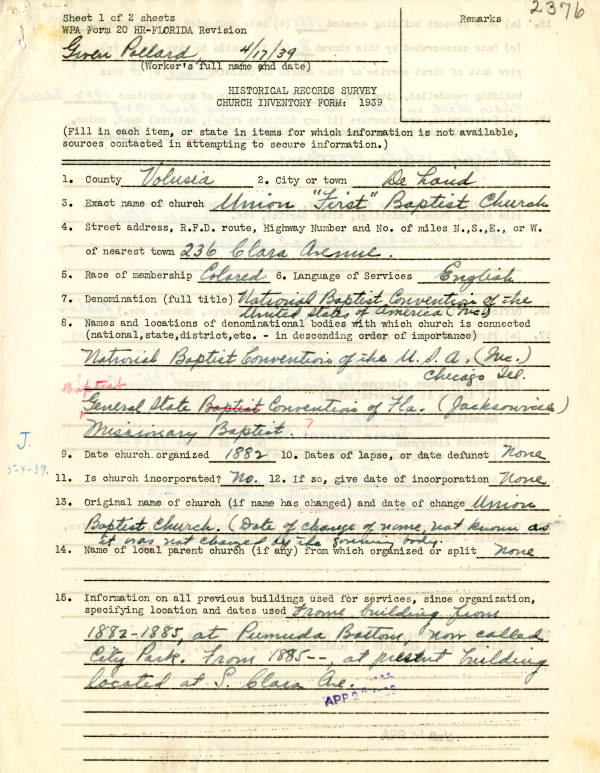 2376
Sheet 1 of 2 sheets
Remarks
WPA Form 20 HR-FLORIDA Revision
Gwen Pollard 4/17/39
(Worker's full name and date)
HISTORICAL RECORDS SURVEY
CHURCH INVENTORY FORM: 1939
(Fill in each item, or state in items for which information is not available,
sources contacted in attempting to secure information.)
1. County Volusia 2. City or town De Land
3. Exact name of church Union "First" Baptist Church
4. Street address, R.F.D. route, Highway Number and No. of miles N.,S.,E., or W.
of nearest town 236 Clara Avenue.
5. Race of membership Colored 6. Language of Services English
7. Denomination (full title) National Baptist Convention of the
United States of America (Inc.)
8. Names and locations of denominational bodies with which church is connected
(national,state,district,etc. - in descending order of importance)
National Baptist Convention of the U.S.A. (Inc.)
Chicago Ill.
Baptist
General State Baptist Convention of Fla. (Jacksonville)
Missionary Baptist. ?
J.
5-4-39.
9. Date church organized 1882 10. Dates of lapse, or date defunct None
11. Is church incorporated? No. 12. If so, give date of incorporation None
13. Original name of church (if name has changed) and date of change Union
Baptist Church. (Date of change of name, not known as
it was not changed by the governing body.
14. Name of local parent church (if any) from which organized or split None
15. Information on all previous buildings used for services, since organization,
specifying location and dates used Frame building from
1882-1885, at Pumuda Bottom, now called
City Park. From 1885--, at present building
located at S. Clara Ave.
APR 2